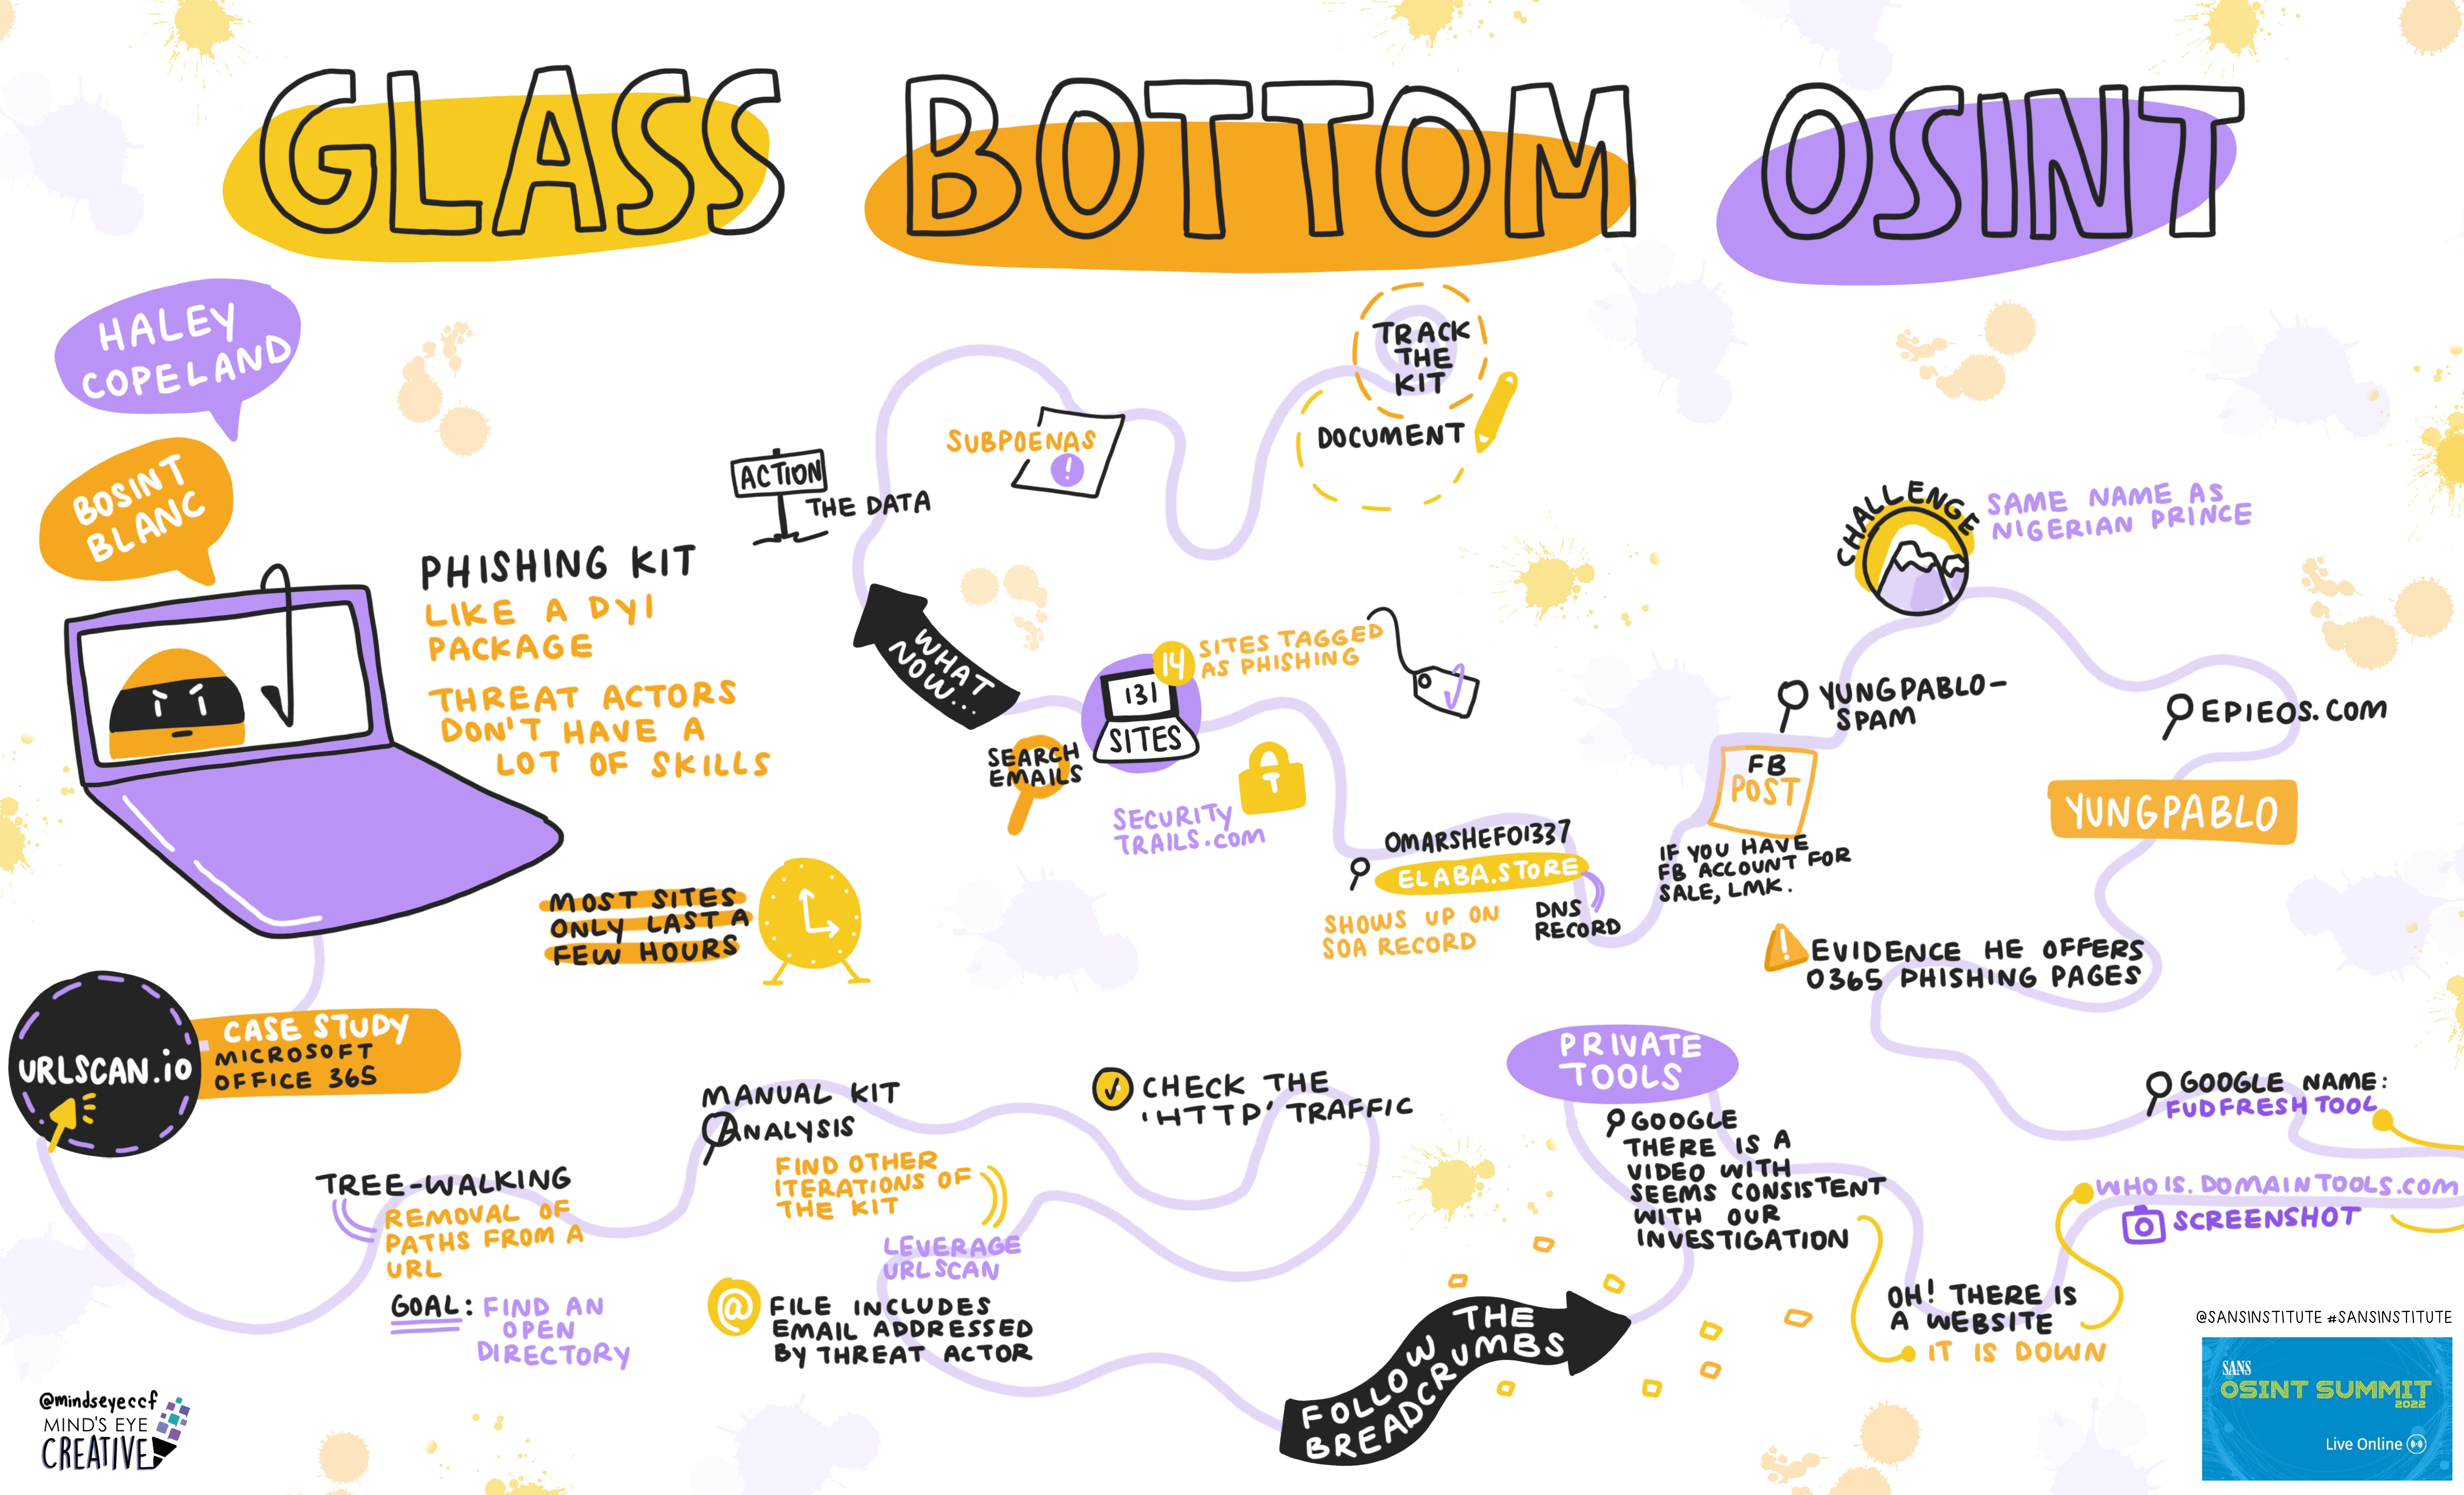 GLASS BOTTOM OSINT
HALEY
COPELAND
BOSINT
BLANC
PHISHING KIT
LIKE A DYI
PACKAGE
THREAT ACTORS
DON'T HAVE A
LOT OF SKILLS
MOST SITES
ONLY LAST A
FEW HOURS
URLSCAN.io
CASE STUDY
MICROSOFT
OFFICE 365
TREE-WALKING
REMOVAL OF
PATHS FROM A
URL
GOAL: FIND AN
OPEN
DIRECTORY
MANUAL KIT
ANALYSIS
FIND OTHER
ITERATIONS OF
THE KIT
CHECK THE
'HTTP' TRAFFIC
LEVERAGE
URLSCAN
@ FILE INCLUDES
EMAIL ADDRESSED
BY THREAT ACTOR
FOLLOW THE
BREADCRUMBS
PRIVATE
TOOLS
GOOGLE
THERE IS A
VIDEO WITH
SEEMS CONSISTENT
WITH OUR
INVESTIGATION
OH! THERE IS
A WEBSITE
IT IS DOWN
WHO IS. DOMAINTOOLS.COM
SCREENSHOT
GOOGLE NAME:
FUDFRESHTOOL
! EVIDENCE HE OFFERS
O365 PHISHING PAGES
YUNGPABLO
EPIEOS.COM
CHALLENGE
SAME NAME AS
NIGERIAN PRINCE
YUNGPABLO-
SPAM
FB
POST
IF YOU HAVE
FB ACCOUNT FOR
SALE, LMK.
OMARSHEFO1337
ELABA.STORE
SHOWS UP ON
SOA RECORD
DNS
RECORD
14 SITES TAGGED
AS PHISHING
131
SITES
SECURITY
TRAILS.COM
SEARCH
EMAILS
WHAT
NOW...
ACTION
THE DATA
SUBPOENAS
!
TRACK
THE
KIT
DOCUMENT
@mindseyeccf
MIND'S EYE
CREATIVE
@SANSINSTITUTE #SANSINSTITUTE
SANS
OSINT SUMMIT
2022
Live Online